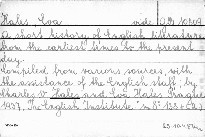 Hales, Eva vide
A short history of English literature
from the earliest times to the present
day.
Compiled from various sources, with
the assistance of the English staff, by
Charles Hales and Eva Hales. Prague
1937, "The English Institute."